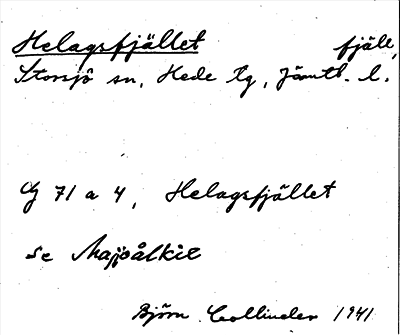 Helagsfjället fjäll,
Storsjö sn, Hede tg, Jämtl. l.
G 71 a 4, Helagsfjället
se Majjoålkie
Björn Collinder 1941